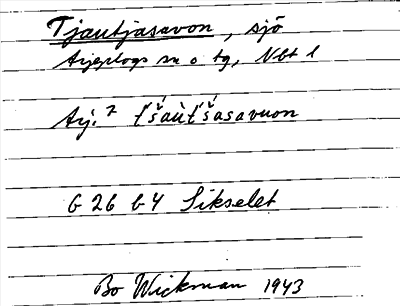 Tjautjasavon, sjö
Arjeplogs sn o tg, Nbt l
Arj. 2 t́šaùt́šasavuon
G 26 b 4 Sikselet
Bo Wickman 1943